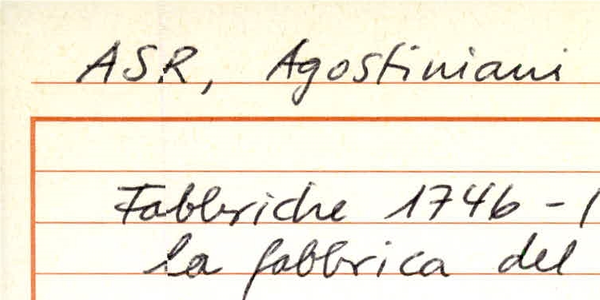 ASR, Agostiniani
Fabbriche 1746 - 1
la fabbrica del